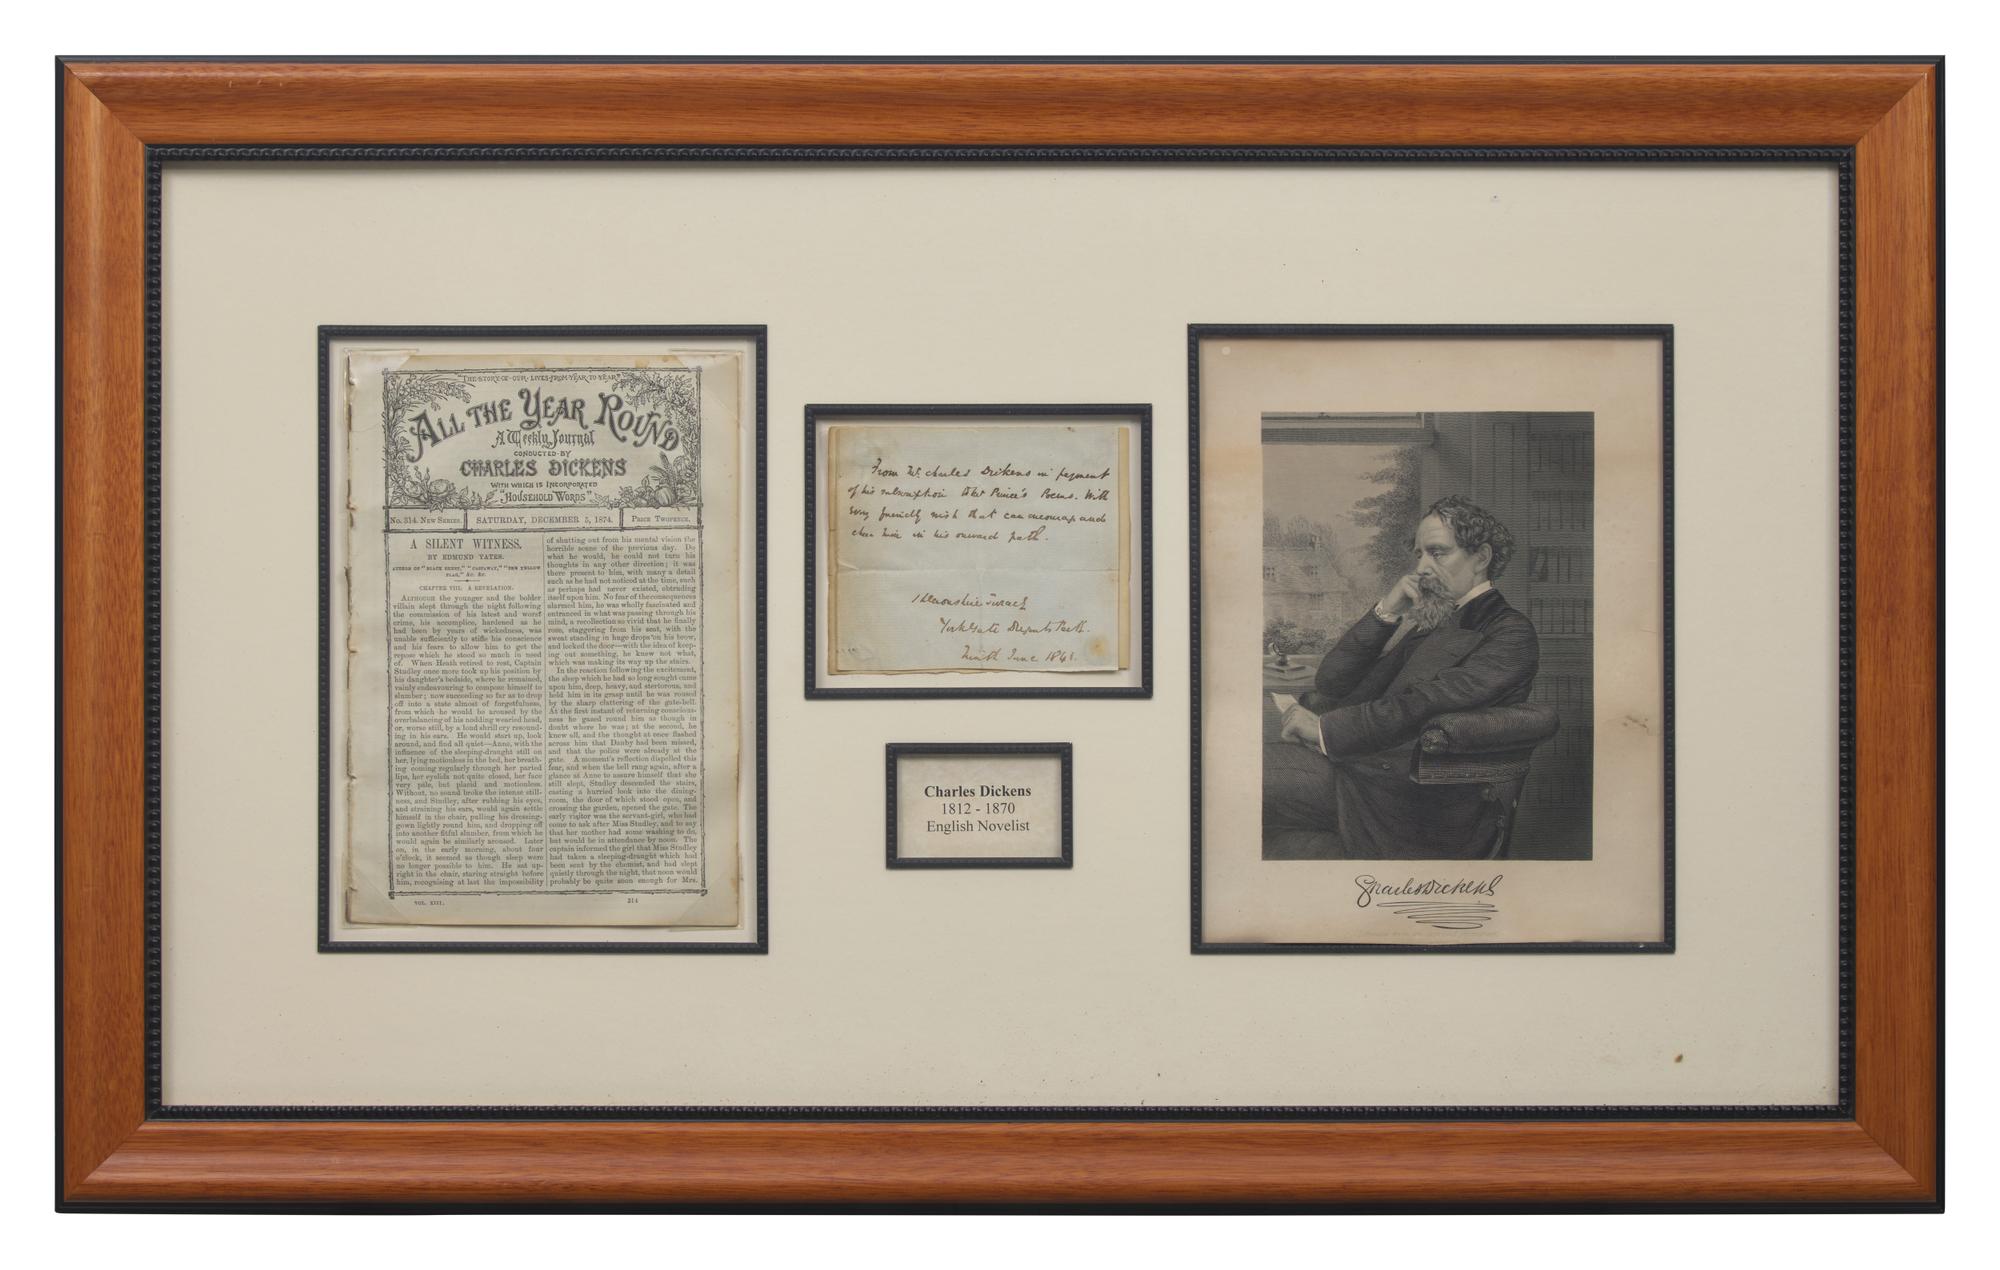 "THE·STORY·OF·OUR·LIVES·FROM·YEAR·TO·YEAR"
ALL THE YEAR ROUND
A Weekly Journal
CONDUCTED·BY
CHARLES DICKENS
WITH WHICH IS INCORPORATED
"HOUSEHOLD WORDS"
No. 314. NEW SERIES.
SATURDAY, DECEMBER 5, 1874.
PRICE TWOPENCE.
A SILENT WITNESS.
BY EDMUND YATES.
AUTHOR OF "BLACK SHEEP," "CASTAWAY," "THE YELLOW
FLAG," &c. &c.
CHAPTER VIII. A REVELATION.
ALTHOUGH the younger and the bolder
villain slept through the night following
the commission of his latest and worst
crime, his accomplice, hardened as he
had been by years of wickedness, was
unable sufficiently to stifle his conscience
and his fears to allow him to get the
repose which he stood so much in need
of. When Heath retired to rest, Captain
Studley once more took up his position by
his daughter's bedside, where he remained,
vainly endeavouring to compose himself to
slumber; now succeeding so far as to drop
off into a state almost of forgetfulness,
from which he would be aroused by the
overbalancing of his nodding wearied head,
or, worse still, by a loud shrill cry resound-
ing in his ears. He would start up, look
around, and find all quiet—Anne, with the
influence of the sleeping-draught still on
her, lying motionless in the bed, her breath-
ing coming regularly through her parted
lips, her eyelids not quite closed, her face
very pale, but placid and motionless.
Without, no sound broke the intense still-
ness, and Studley, after rubbing his eyes,
and straining his ears, would again settle
himself in the chair, pulling his dressing-
gown lightly round him, and dropping off
into another fitful slumber, from which he
would again be similarly aroused. Later
on, in the early morning, about four
o'clock, it seemed as though sleep were
no longer possible to him. He sat up-
right in the chair, staring straight before
him, recognising at last the impossibility
of shutting out from his mental vision the
horrible scene of the previous day. Do
what he would, he could not turn his
thoughts in any other direction; it was
there present to him, with many a detail
such as he had not noticed at the time, such
as perhaps had never existed, obtruding
itself upon him. No fear of the consequences
alarmed him, he was wholly fascinated and
entranced in what was passing through his
mind, a recollection so vivid that he finally
rose, staggering from his seat, with the
sweat standing in huge drops on his brow,
and locked the door—with the idea of keep-
ing out something, he knew not what,
which was making its way up the stairs.
In the reaction following the excitement,
the sleep which he had so long sought came
upon him, deep, heavy, and stertorous, and
held him in its grasp until he was roused
by the sharp clattering of the gate-bell.
At the first instant of returning conscious-
ness he gazed round him as though in
doubt where he was; at the second, he
knew all, and the thought at once flashed
across him that Danby had been missed,
and that the police were already at the
gate. A moment's reflection dispelled this
fear, and when the bell rang again, after a
glance at Anne to assure himself that she
still slept, Studley descended the stairs,
casting a hurried look into the dining-
room, the door of which stood open, and
crossing the garden, opened the gate. The
early visitor was the servant-girl, who had
come to ask after Miss Studley, and to say
that her mother had some washing to do,
but would be in attendance by noon. The
captain informed the girl that Miss Studley
had taken a sleeping-draught which had
been sent by the chemist, and had slept
quietly through the night, that noon would
probably be quite soon enough for Mrs.
VOL. XIII.
314
From Mr. Charles Dickens in payment
of his subscription to Mr Prince's Poems. With
every friendly wish that can encourage and
cheer him in his onward path.
1 Devonshire Terrace
York Gate Regents Park.
Ninth June 1841.
Charles Dickens
1812 - 1870
English Novelist
Charles Dickens